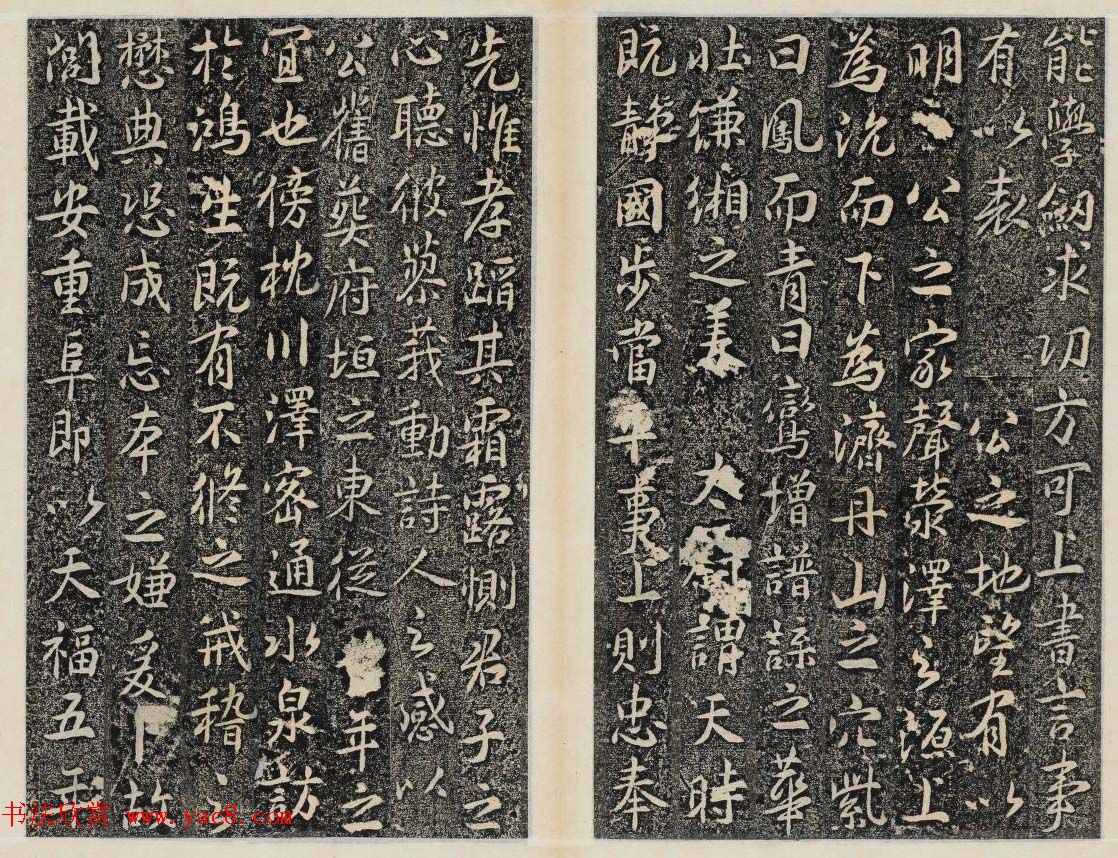 能學劒求功方可上書言事
有以表公之地望有以
明公之家聲滎澤之源上
為沇而下為濟丹山之穴紫
曰鳳而青曰鸞增譜諜之華
壯縑緗之美大謂天時
既靜國步當平事上則忠奉
先惟孝蹈其霜露惻君子之
心聽彼蓼莪動詩人之感以
公舊葬府垣之東從年之
宜也傍枕川澤密通水泉訪
於鴻生既有不修之戒稽之
懋典恐成忘本之嫌爰卜故
閭載安重阜即以天福五年
书法欣赏 www.yac8.com